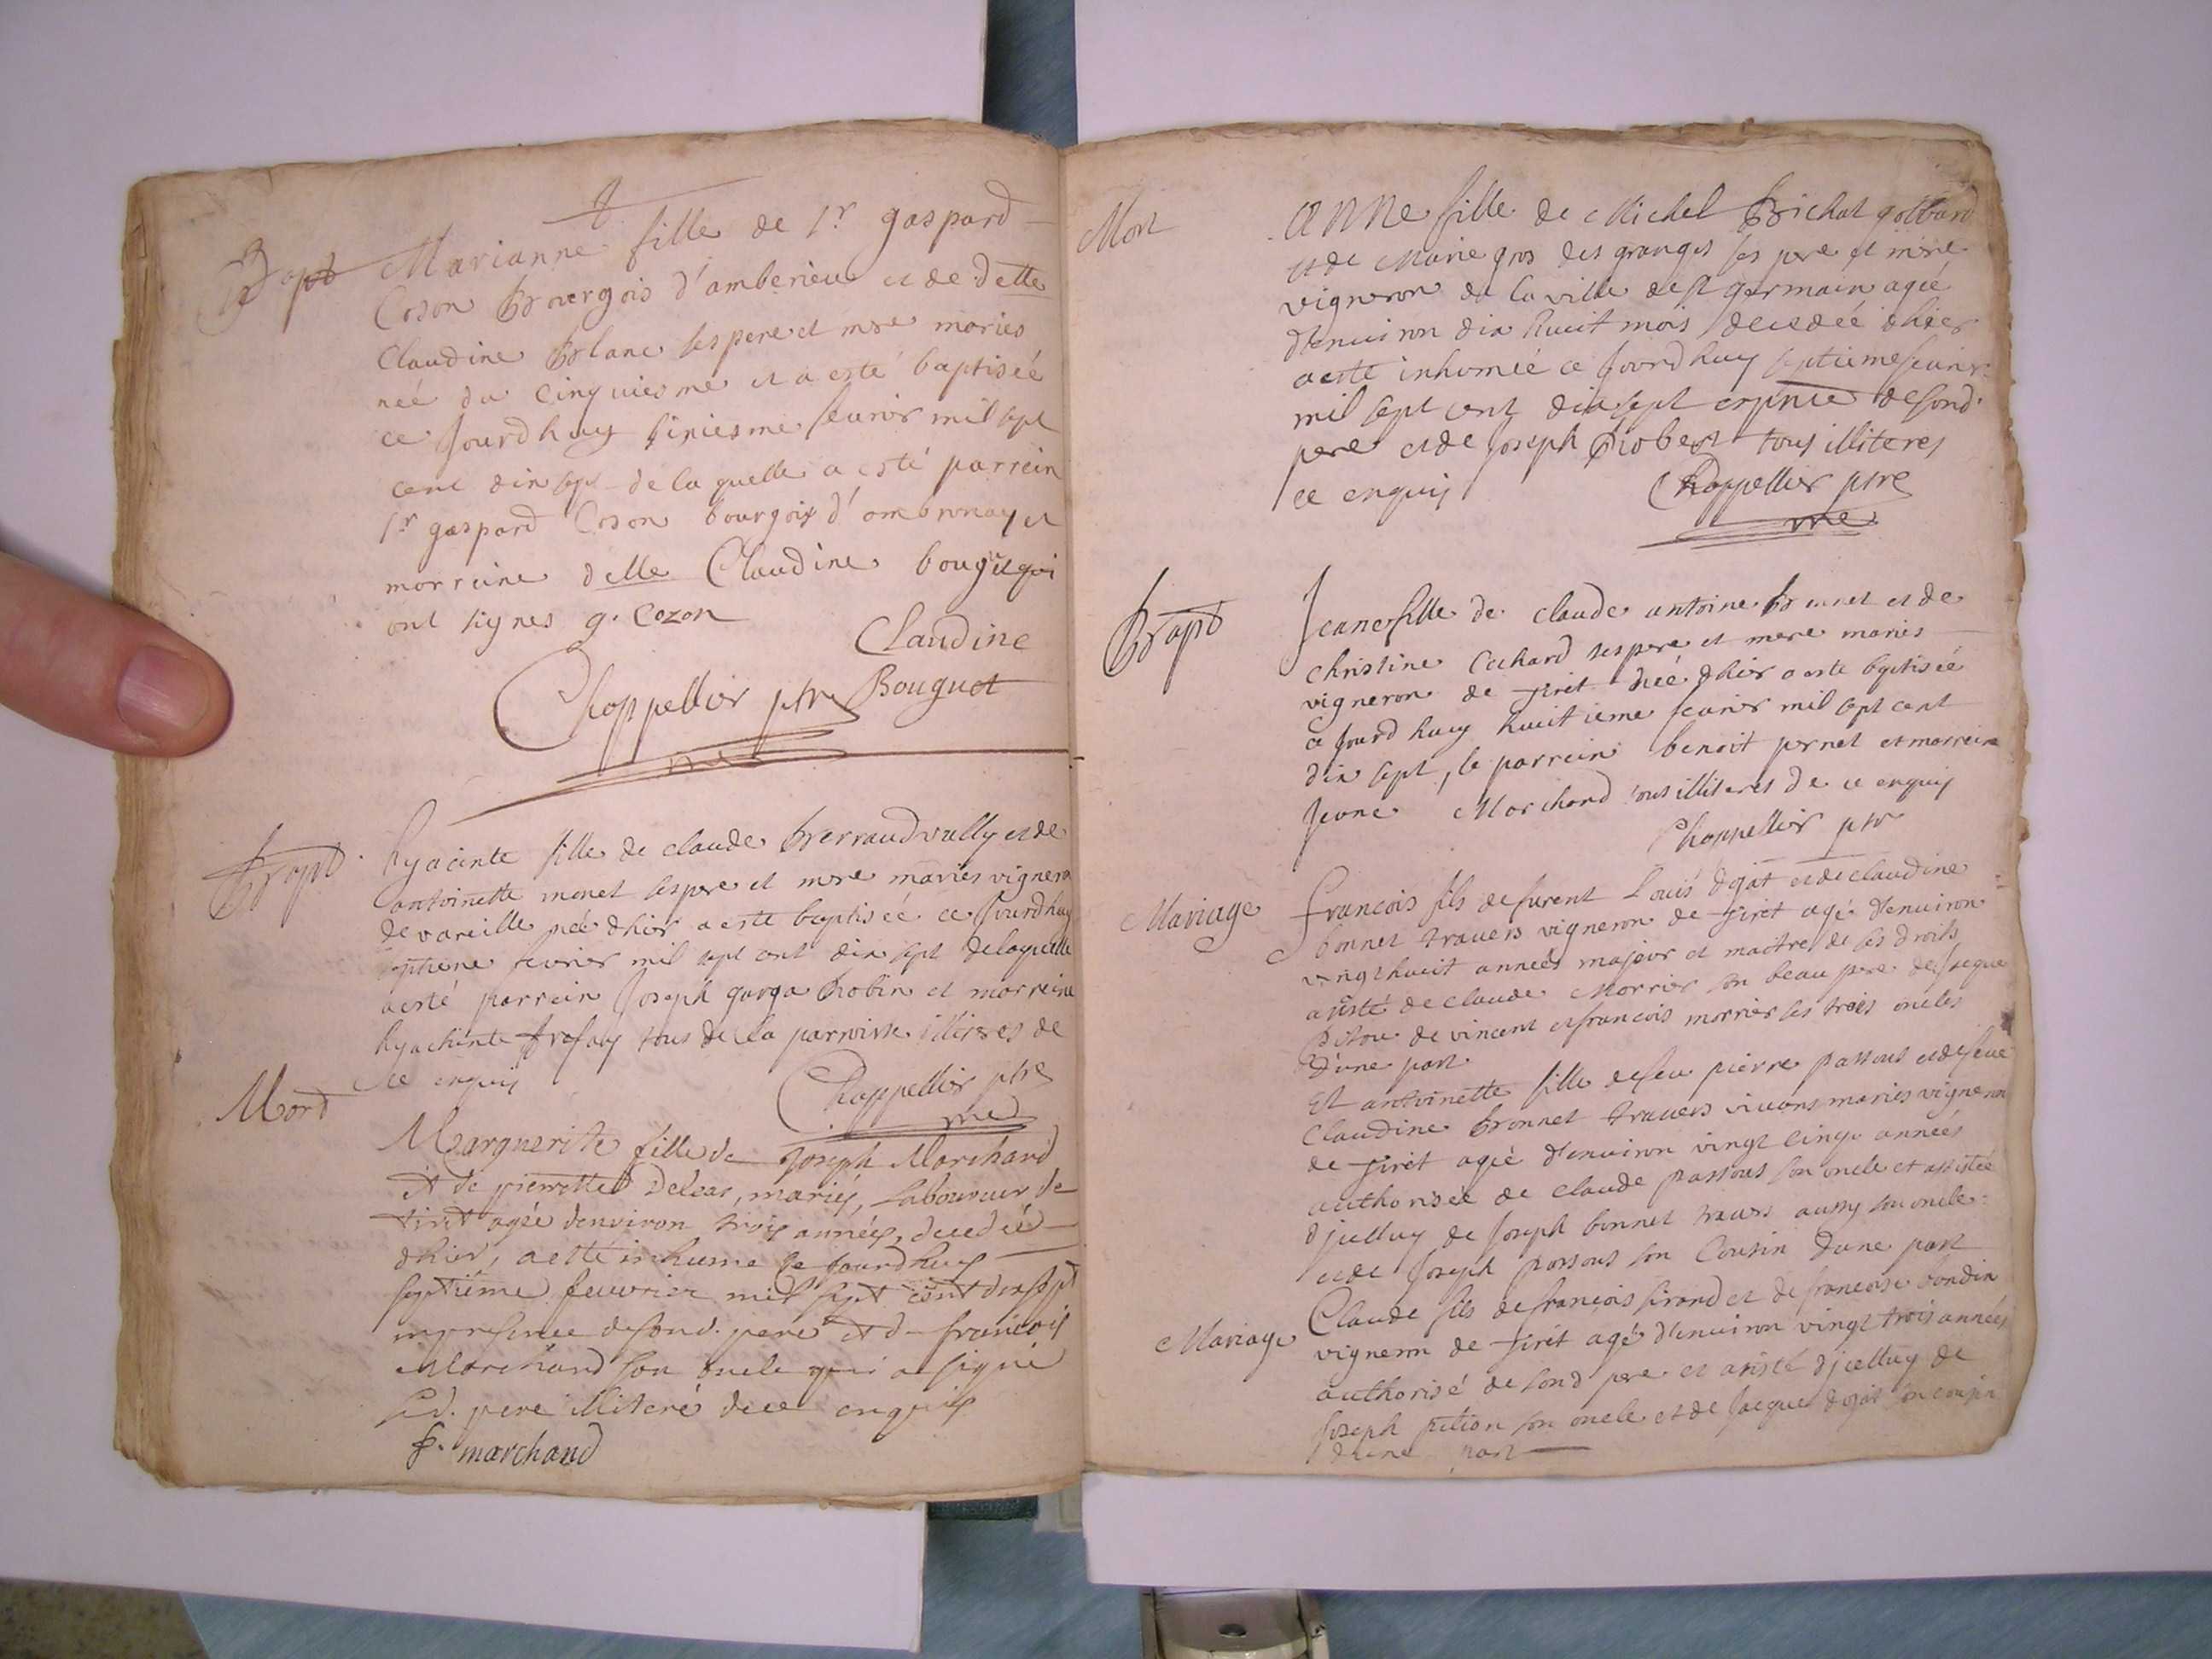 Bapt
Marianne fille de Sr gaspard
Coson Bourgois d'amberieu et de delle
Claudine Blanc ses pere et mere maries
née du cinquiesme et a esté baptiseé
ce Jourdhuy sixiesme feurier mil sept
cent dix sept de la quelle a esté parrein
Sr gaspard Coson bourgois d'ambronay et
marreine delle Claudine bouguet qui
ont signes g. Cozon
Claudine
Bouguet
Chappellier ptre
vre
Bapt
hyacinte fille de claude Berraud vully et de
antoinette monet ses pere et mere mariés vigneron
de vareille née dhier a esté baptiseé ce Jourdhuy
septieme feurier mil sept cent dix sept de laquelle
a esté parrein Joseph garga Robin et marreine
hyachinte trefay tous de la parroisse illiteres de
ce enquis
Chappellier ptre
vre
Mord
Marguerite fille de Joseph Marchand
et de pierrette Deleas, mariés, Laboureur de
tiret agée denviron trois années, decedeé
dhier, a esté inhume ce Jourdhuy
septième feuvrier mil sept cent dix sept
en presence de son d. pere et de francois
Marchand son oncle qui a signé
Led. pere illiteré de ce enquis
f. marchand
Mort
Anne fille de Michel Brichat gottard
et de Marie gros des granges ses pere et mere
vigneron de la ville de st germain ageé
d'enuiron dix huit mois decedeé dhier
a esté inhumeé ce Jourdhuy septieme feurier
mil sept cent dix sept en pnce de son d.
pere et de Joseph Robert tous illiteres
ce enquis
Chappellier ptre
vre
Bapt
Jeane fille de claude antoine brunet et de
christine Cochard ses pere et mere mariés
vigneron de tiret née dhier a esté baptisée
ce Jourdhuy huitieme feurier mil sept cent
dix sept, le parrein benoit pernet et marreine
Jeane Marchand tous illiteres de ce enquis
Chappellier ptre
Mariage
francois fils de furent Louis dojat et de claudine
bonnet trauers vigneron de tiret agé d'enuiron
vingt huit années majeur et maitre de ses droits
asisté de claude Morrier son beau pere de Jacque
pition de vincent et francois morrier ses trois oncles
d'une part
Et antoinette fille de feu pierre passout et de feue
claudine bonnet trauers viuans mariés vigneron
de tiret ageé d'enuiron vingt cinq années
authorisée de claude passout son oncle et assistée
d'jcelluy de Joseph bonnet trauers aussy son oncle
et de Joseph passout son Cousin d'une part
Mariage
Claude fils de francois sirand et de francoise bondin
vigneron de tiret agé d'enuiron vingt trois années
authorisé de son d pere et asisté d'jcelluy de
Joseph pition son oncle et de Jacque dojat son cousin
d'une part